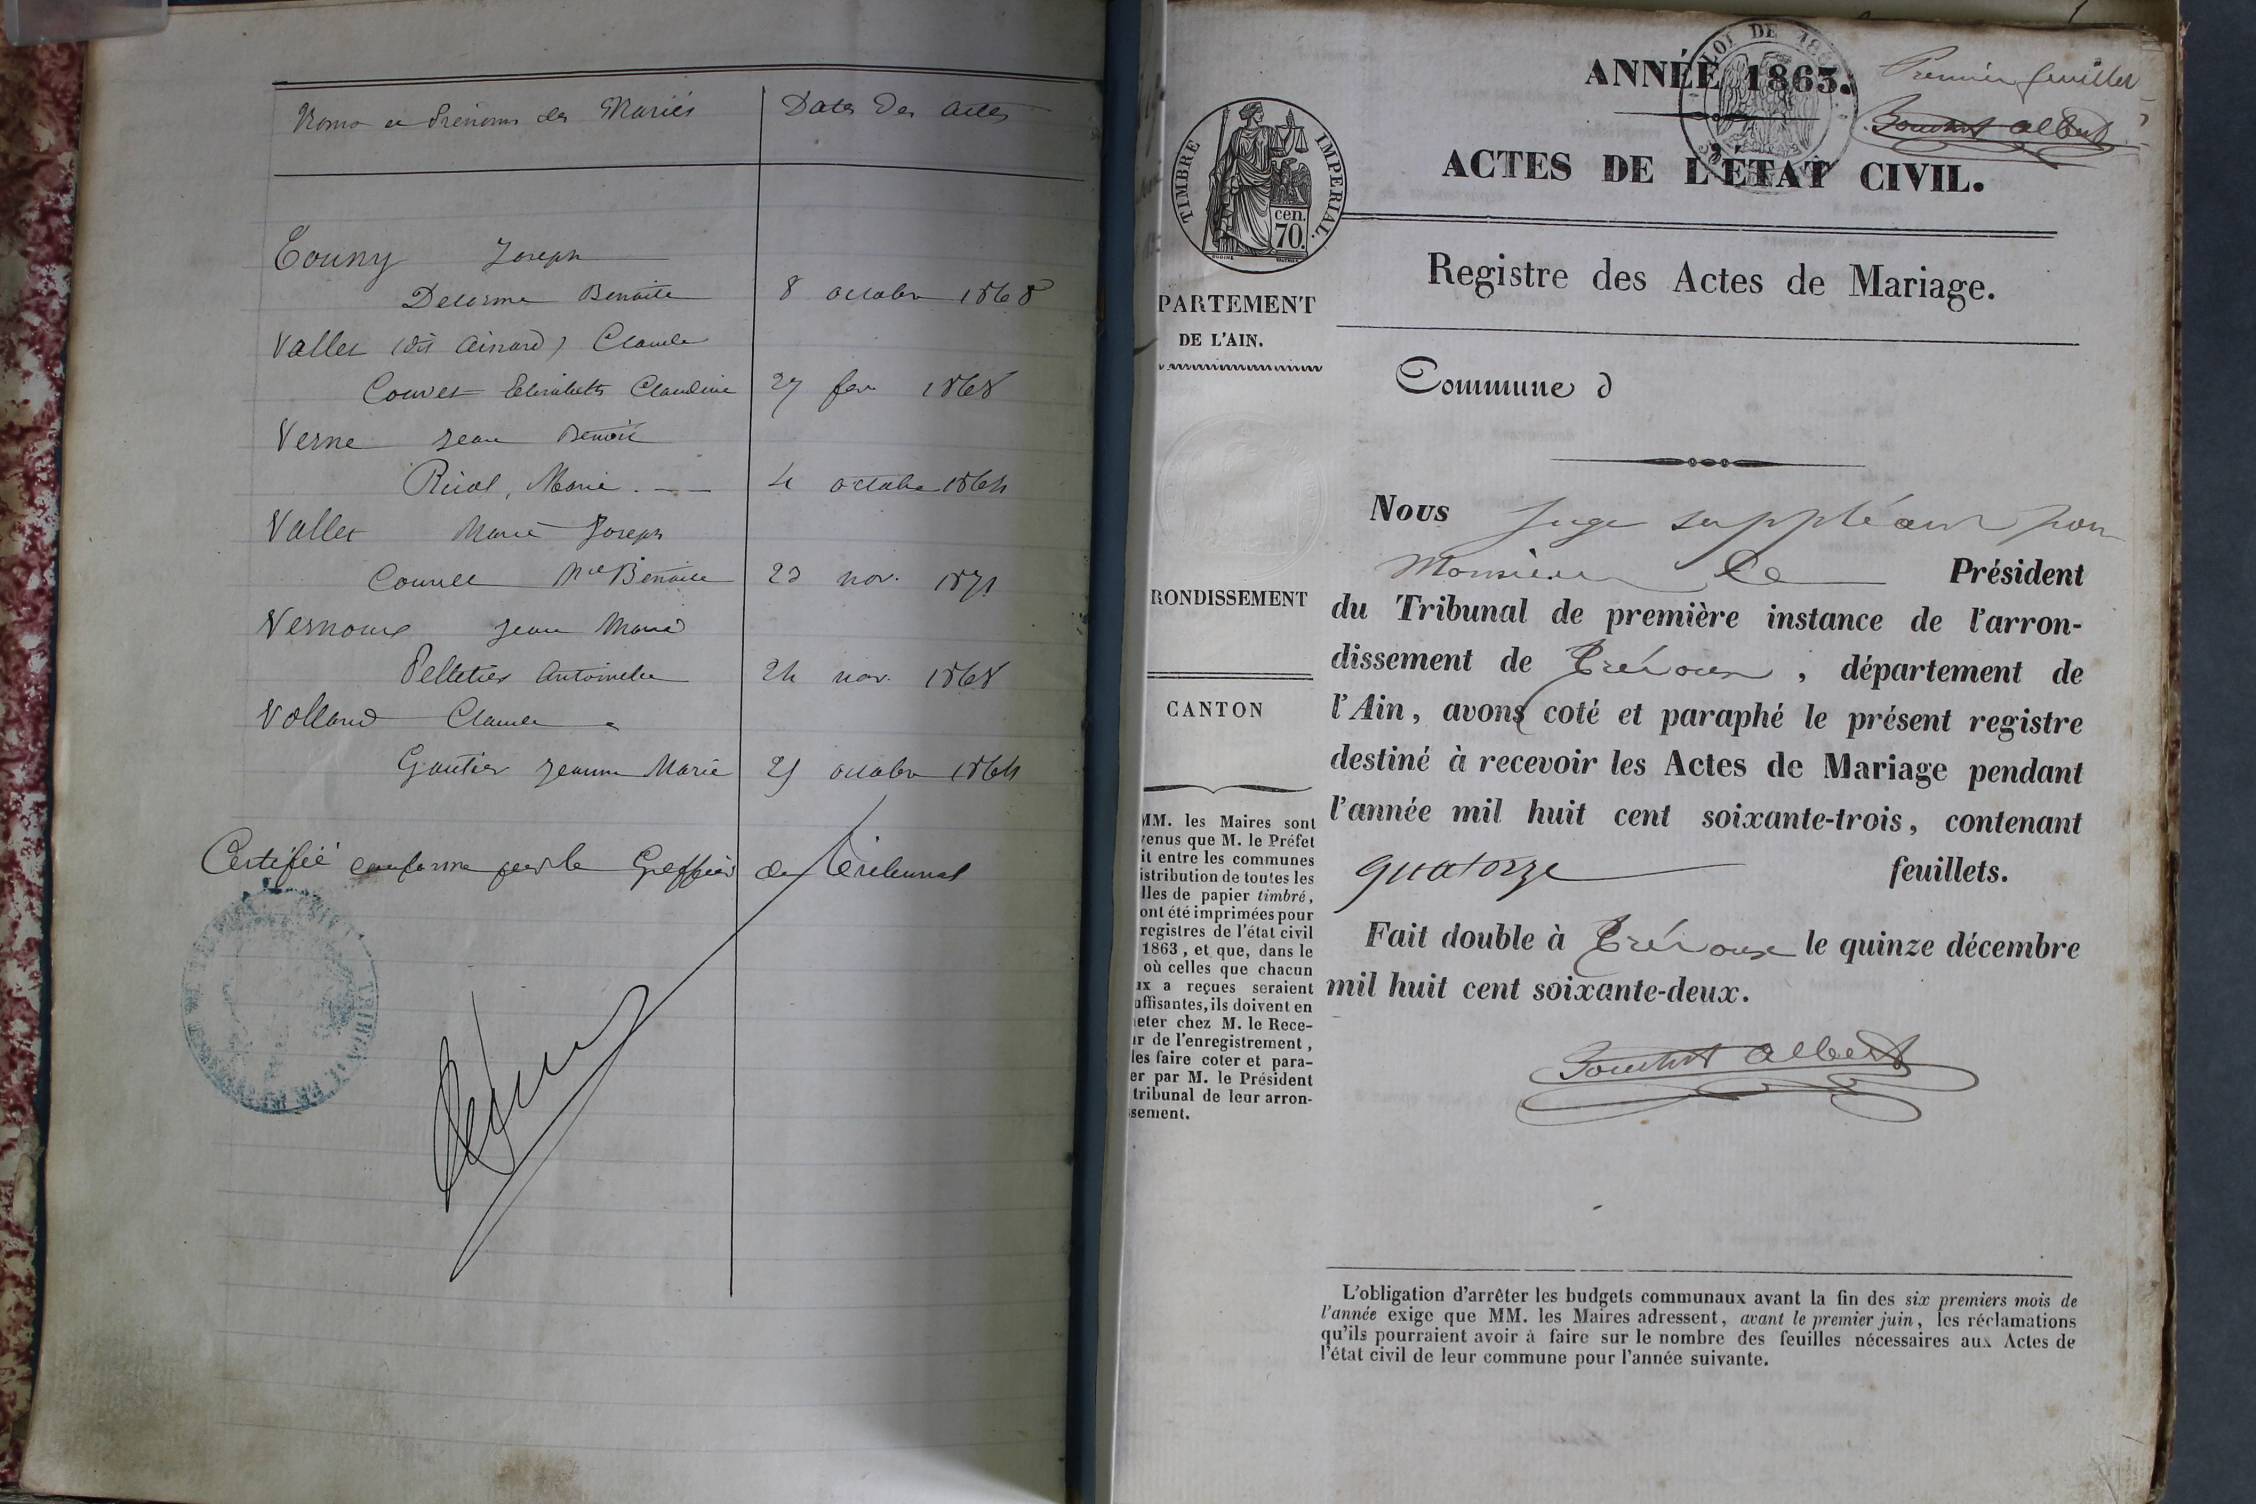 Noms et Prénoms des Mariés
Dates des actes
Touny Joseph
Delorme Benoite 8 octobre 1868
Vallet (dit Ainard) Claude
Couvet Elisabeth Claudine 27 fev 1868
Verne Jean Benoit
Marie 4 octobre 1864
Vallet Marie Joseph
Benoite 23 nov. 1871
Vernoux Jean Marie
Pelletier Antoinette 24 nov. 1868
Volland Claude
Gautier Jeanne Marie 25 octobre 1864
Certifié conforme par le Greffier du Tribunal
ANNÉE 1863.
LOI DE
Premier feuillet
Albert
TIMBRE IMPERIAL.
cen.
70.
ACTES DE L'ÉTAT CIVIL.
Registre des Actes de Mariage.
PARTEMENT
DE L'AIN.
Commune d
RONDISSEMENT
CANTON
MM. les Maires sont
venus que M. le Préfet
it entre les communes
istribution de toutes les
lles de papier timbré,
ont été imprimées pour
registres de l'état civil
1863, et que, dans le
où celles que chacun
ux a reçues seraient
uffisantes, ils doivent en
heter chez M. le Rece-
ur de l'enregistrement,
les faire coter et para-
er par M. le Président
tribunal de leur arron-
ssement.
Nous Juge suppléant pour
Monsieur le Président
du Tribunal de première instance de l'arron-
dissement de Trévoux, département de
l'Ain, avons coté et paraphé le présent registre
destiné à recevoir les Actes de Mariage pendant
l'année mil huit cent soixante-trois, contenant
quatorze feuillets.
Fait double à Trévoux le quinze décembre
mil huit cent soixante-deux.
Albert
L'obligation d'arrêter les budgets communaux avant la fin des six premiers mois de
l'année exige que MM. les Maires adressent, avant le premier juin, les réclamations
qu'ils pourraient avoir à faire sur le nombre des feuilles nécessaires aux Actes de
l'état civil de leur commune pour l'année suivante.